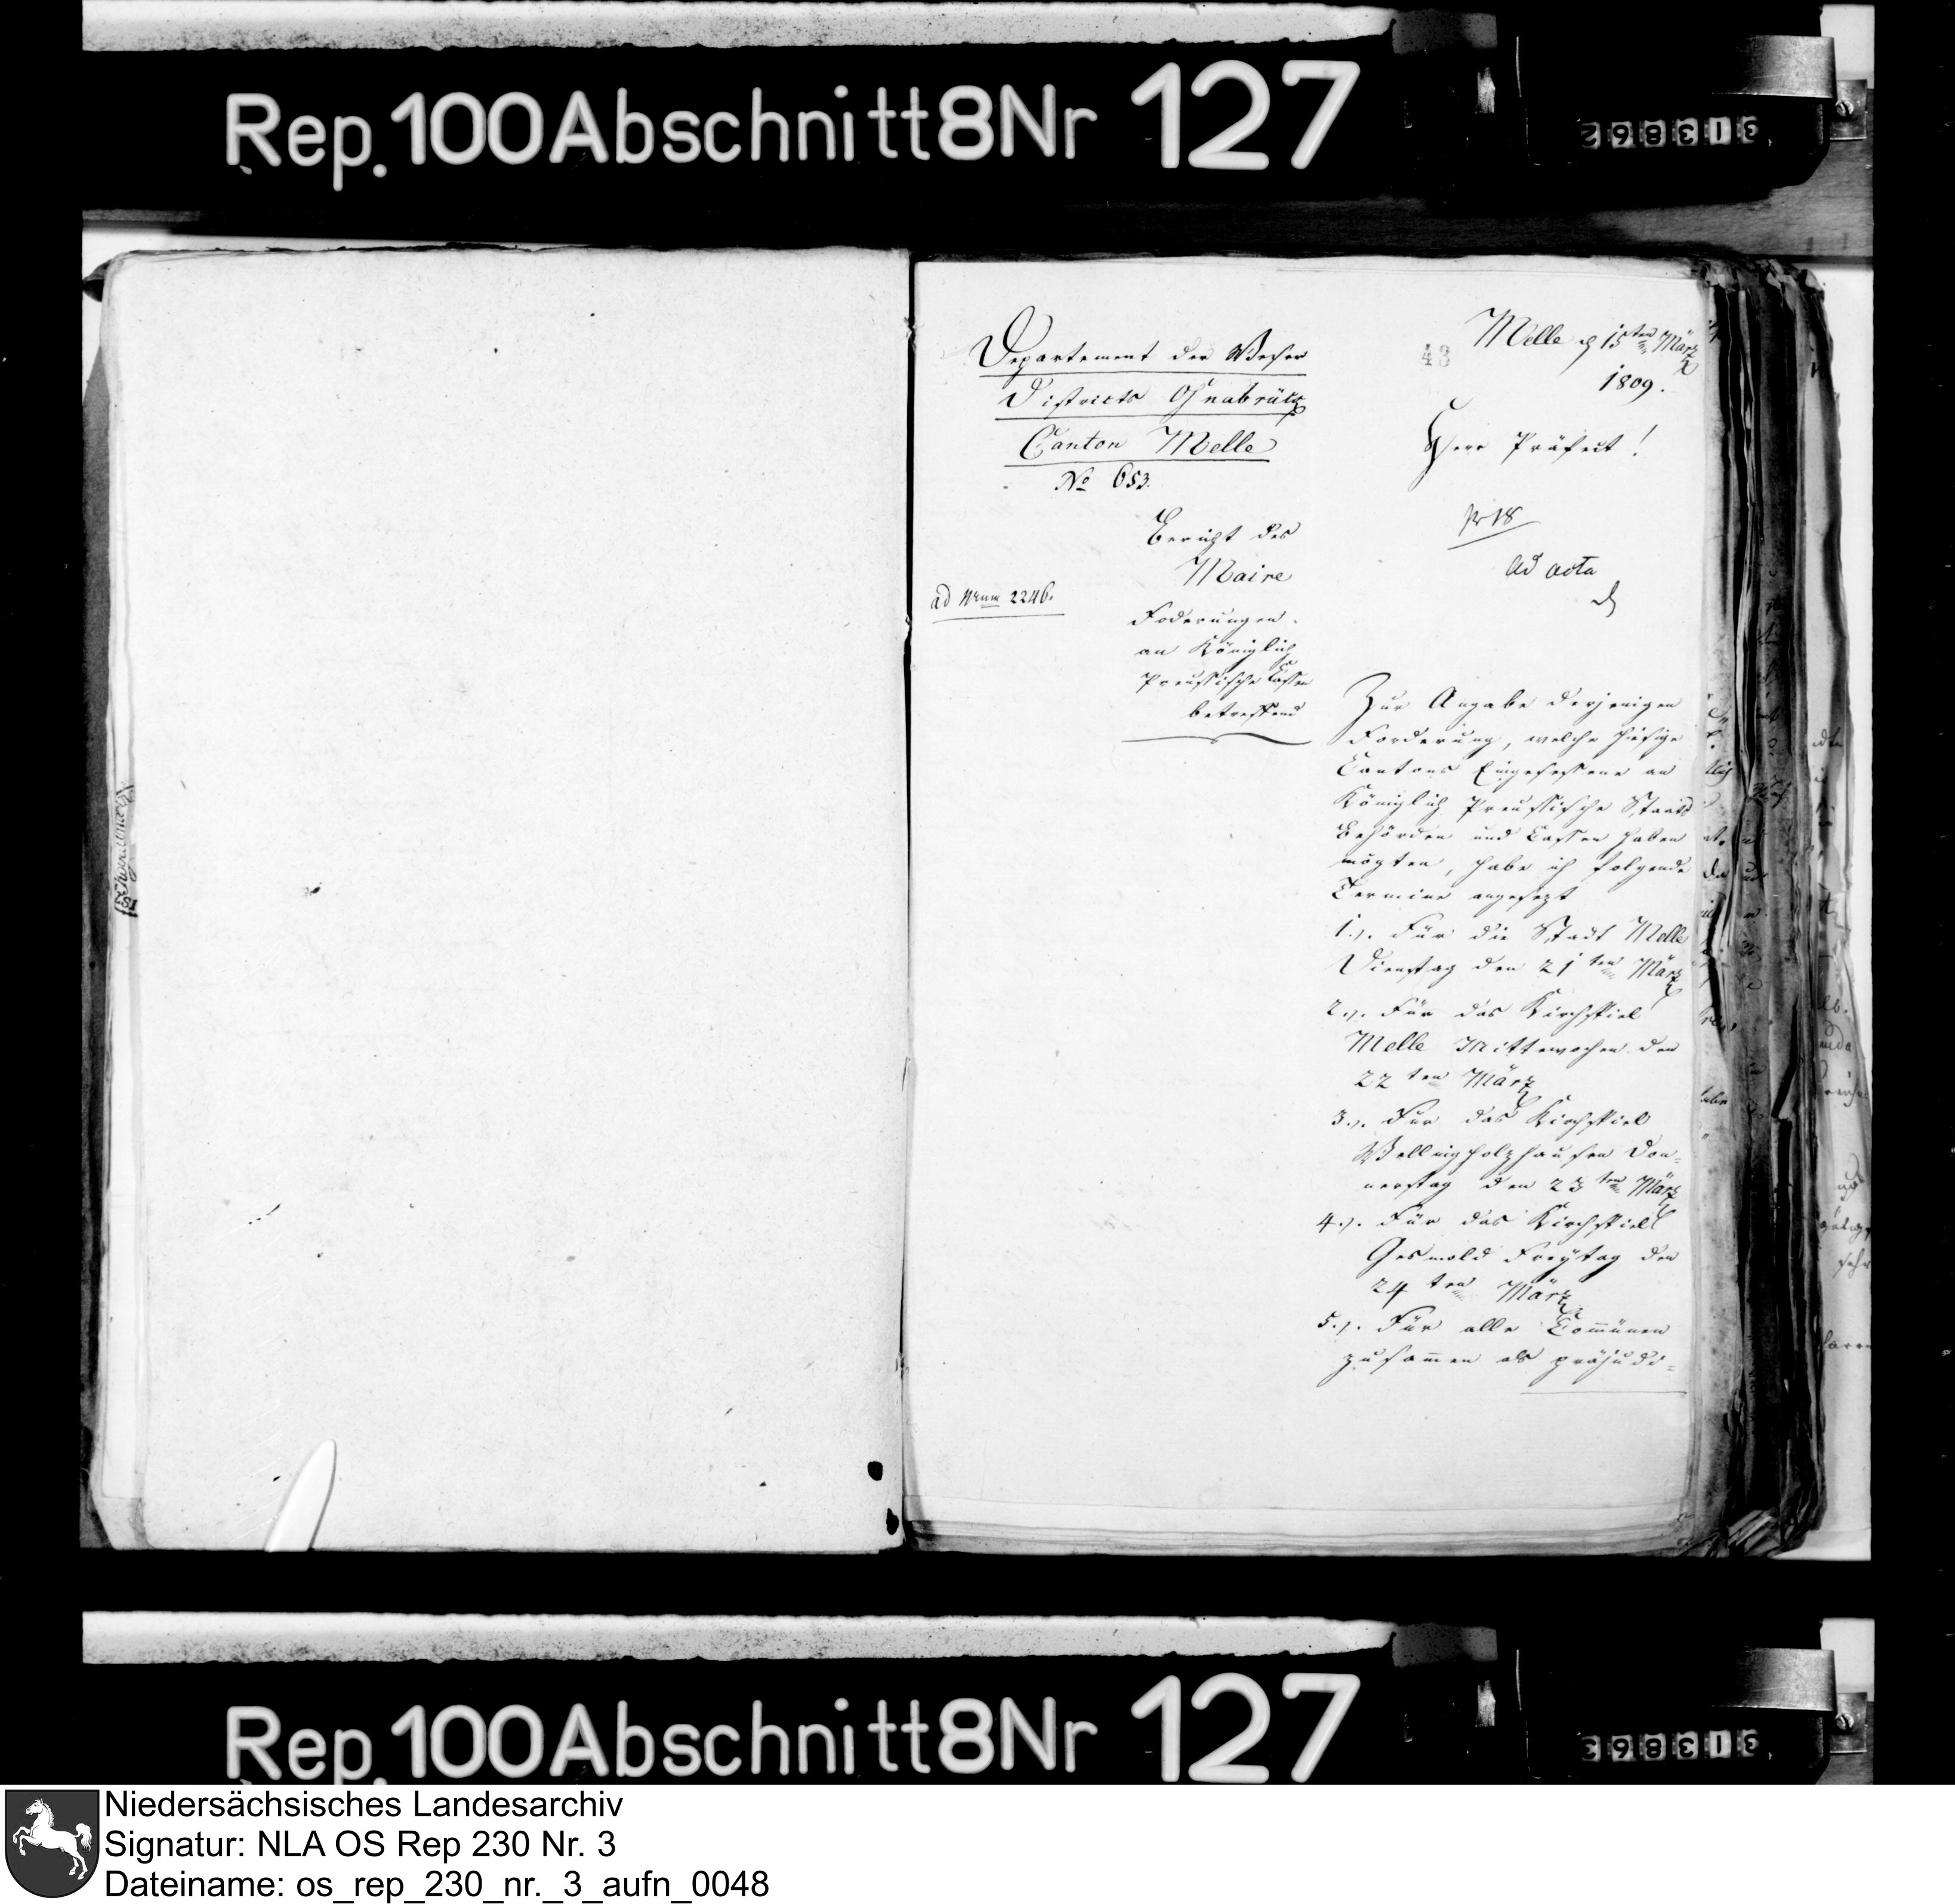 Rep. 100 Abschnitt 8 Nr 127
313862
Departement der Weser
Districts Osnabrück
Canton Melle
No 653.
Bericht des
Maire
ad Num 2246.
Foderungen
an Königlich
Preussische Cassen
betreffend
48
Melle d 15ten März
1809.
Herr Präfect!
pr 18
ad acta
Zur Angabe derjenigen
Forderung, welche hiesige
Cantons Eingesessene an
Königlich Preussische Staats
Behörden und Cassen haben
mögten, habe ich folgende
Termine angesezt
1.). Für die Stadt Melle
Dienstag den 21ten März
2.). Für das Kirchspiel
Melle Mittewochen den
22ten März
3.). Für das Kirchspiel
Wellingholzhausen Don-
nerstag den 23ten März
4.). Für das Kirchspiel
Gesmold Freytag den
24ten März
5.). Für alle Com̄ünen
zusam̄en als präjudi-
Rep. 100 Abschnitt 8 Nr 127
313863
Niedersächsisches Landesarchiv
Signatur: NLA OS Rep 230 Nr. 3
Dateiname: os_rep_230_nr._3_aufn_0048